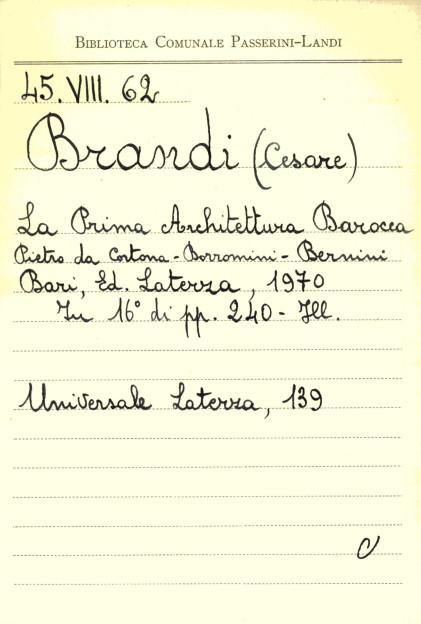 BIBLIOTECA COMUNALE PASSERINI-LANDI
45. VIII. 62
Brandi (Cesare)
La Prima Architettura Barocca
Pietro da Cortona - Borromini - Bernini
Bari, Ed. Laterza, 1970
In 16° di pp. 240 - Ill.
Universale Laterza, 139